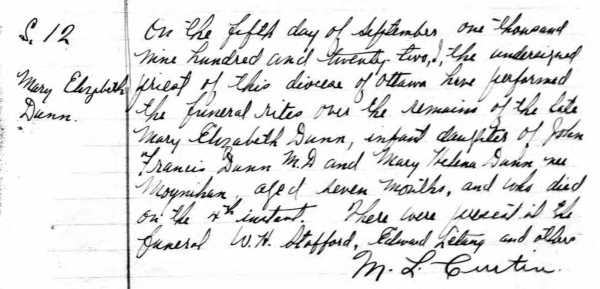 S. 12
Mary Elizabeth
Dunn.
On the fifth day of September, one thousand
nine hundred and twenty two, I, the undersigned
priest of this diocese of Ottawa have performed
the funeral rites over the remains of the late
Mary Elizabeth Dunn, infant daughter of John
Francis Dunn M.D and Mary Helena Dunn nee
Moynihan, aged seven months, and who died
on the 4th instant. There were present at the
funeral W. H. Stafford, Edward and others
M. L. Curtin.